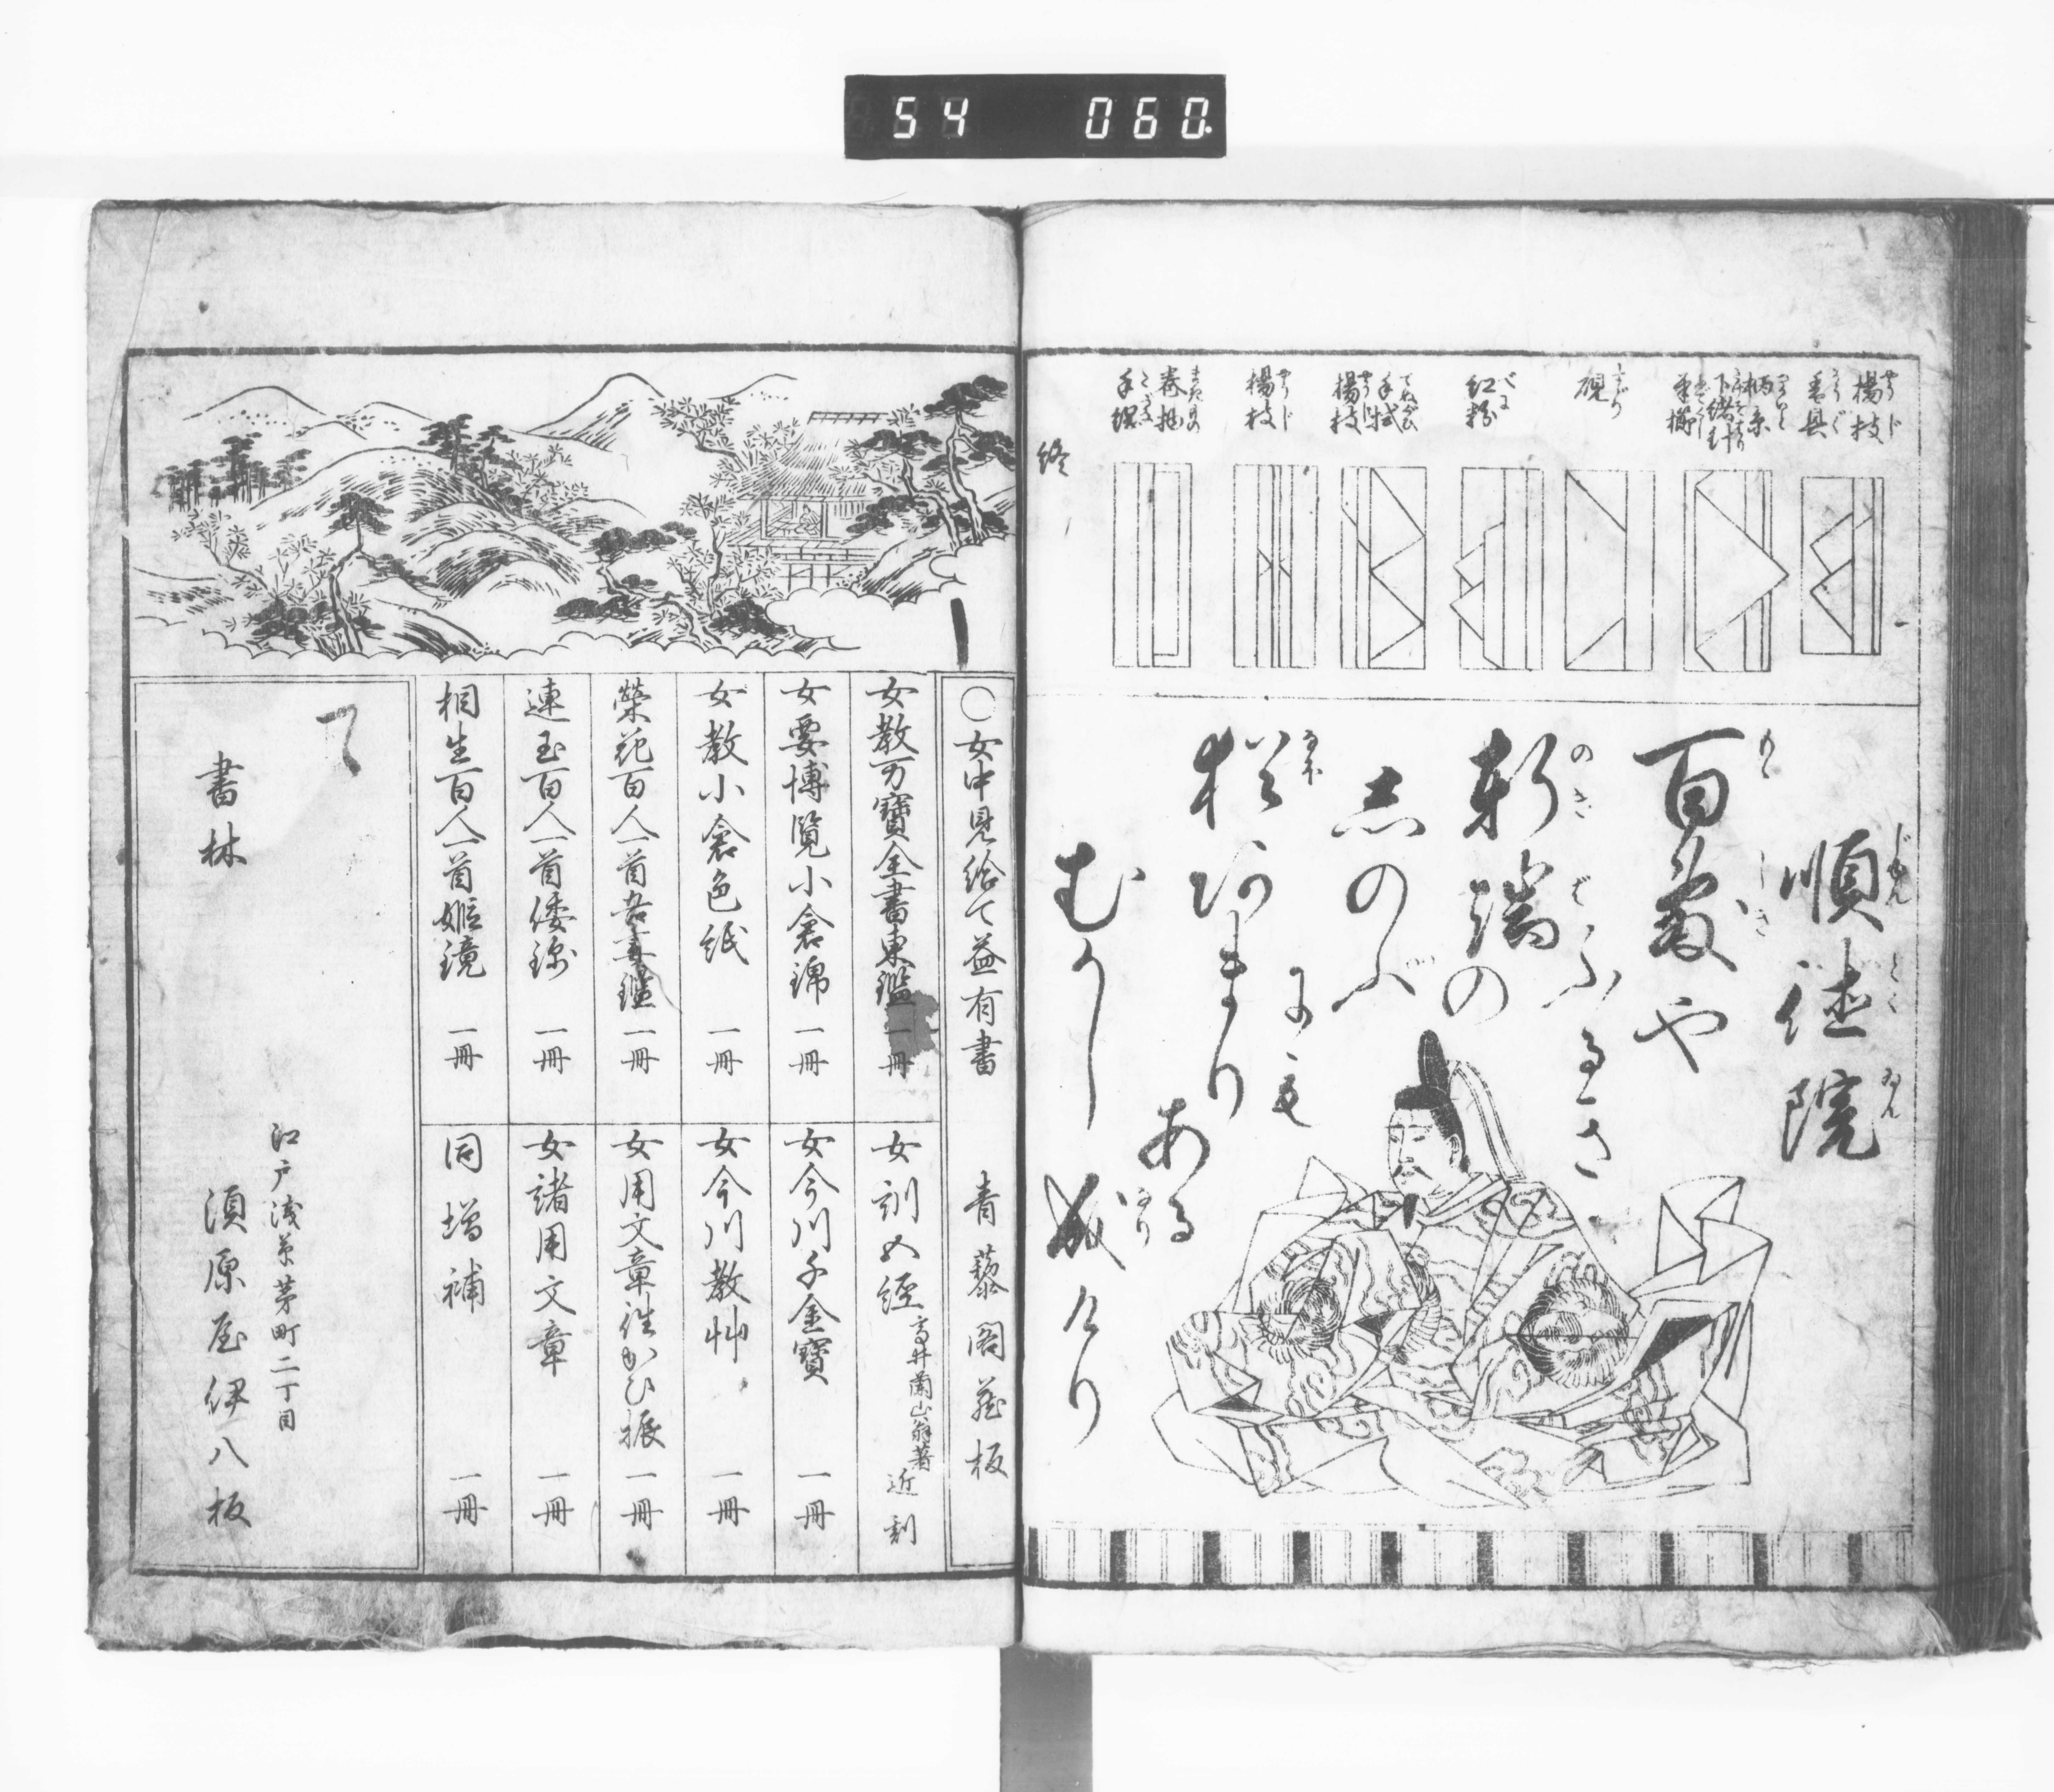 54 060
楊枝
香具
柄糸
下緒針
差櫛
硯
紅粉
手拭
楊枝
楊枝
巻物
手環
終
順徳院
じゅんとくゐん
百敷や
もゝしき
ふるき
軒端の
のきば
志のぶ
にも
猶
なほ
あまり
ある
むかし
成けり
なり
○女中見給て益有書 青藜閣蔵板
女教万寳全書東鑑 一冊
女要博覧小倉錦 一冊
女教小倉色紙 一冊
榮花百人一首吾妻鑑 一冊
連玉百人一首倭錦 一冊
相生百人一首姫鏡 一冊
女訓女経 高井蘭山翁著 近刻
女今川千金寳 一冊
女今川教艸 一冊
女用文章往かひ振 一冊
女諸用文章 一冊
同増補 一冊
書林
江戸浅草茅町二丁目
須原屋伊八板